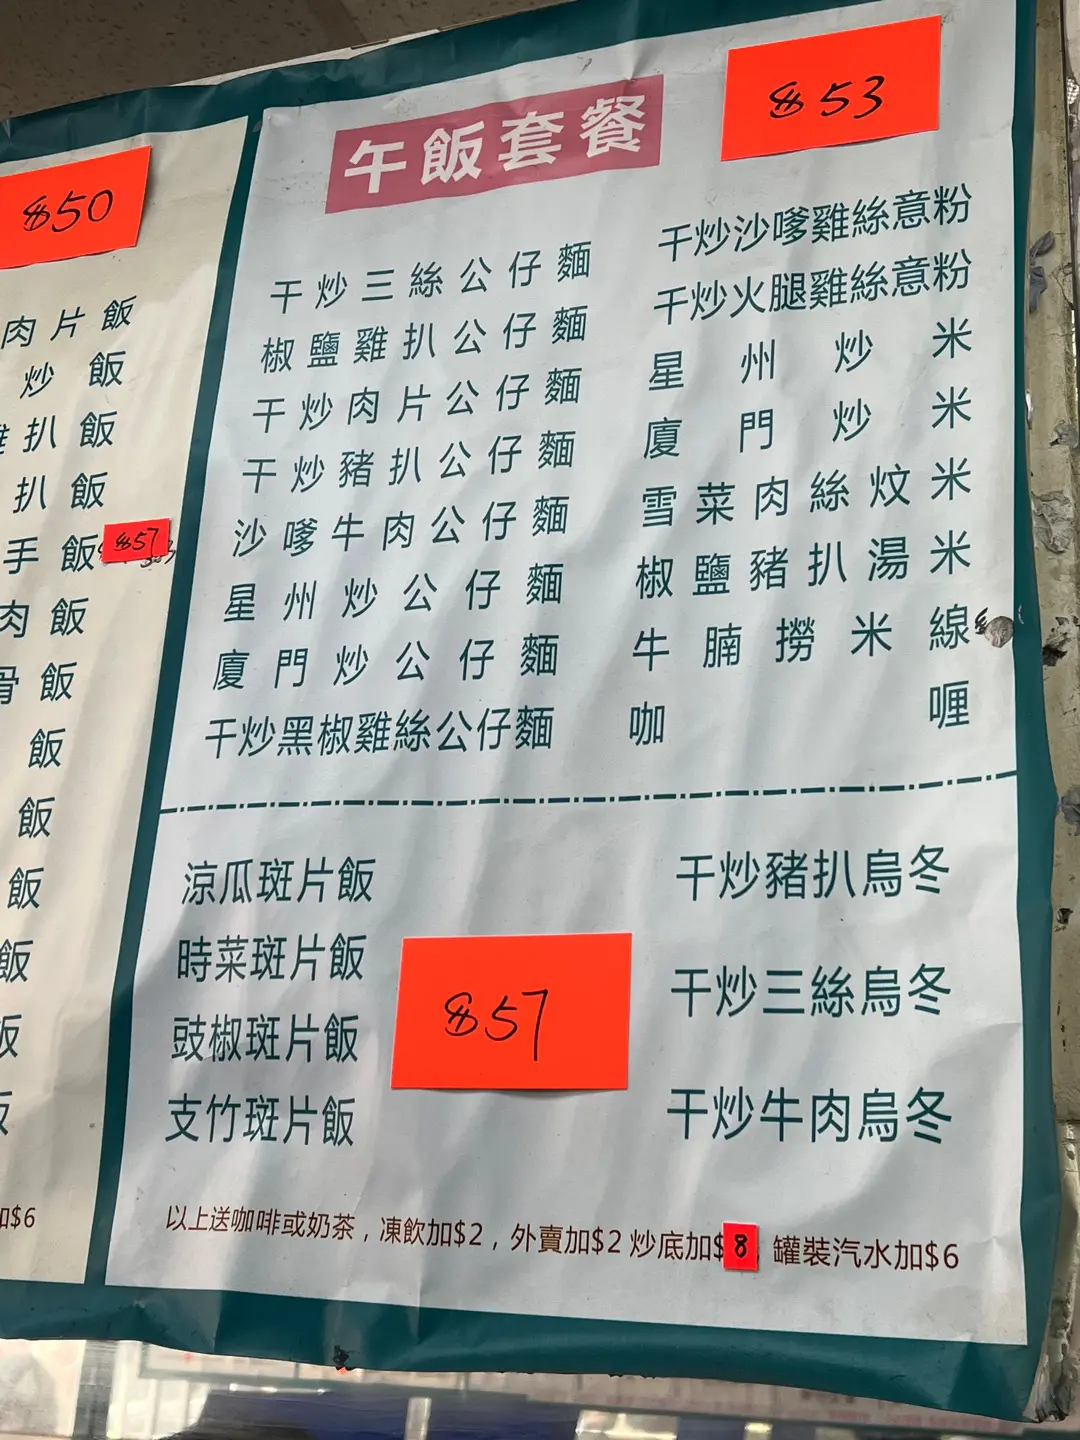 $50
肉片飯
炒飯
雞扒飯
扒飯
手飯 $57
肉飯
骨飯
飯
飯
飯
飯
飯
飯
加$6
午飯套餐
$53
干炒三絲公仔麵
椒鹽雞扒公仔麵
干炒肉片公仔麵
干炒豬扒公仔麵
沙嗲牛肉公仔麵
星州炒公仔麵
廈門炒公仔麵
干炒黑椒雞絲公仔麵
干炒沙嗲雞絲意粉
干炒火腿雞絲意粉
星州炒米
廈門炒米
雪菜肉絲炆米
椒鹽豬扒湯米
牛腩撈米線
咖喱
涼瓜斑片飯
時菜斑片飯
豉椒斑片飯
支竹斑片飯
$57
干炒豬扒烏冬
干炒三絲烏冬
干炒牛肉烏冬
以上送咖啡或奶茶，凍飲加$2，外賣加$2 炒底加$8，罐裝汽水加$6